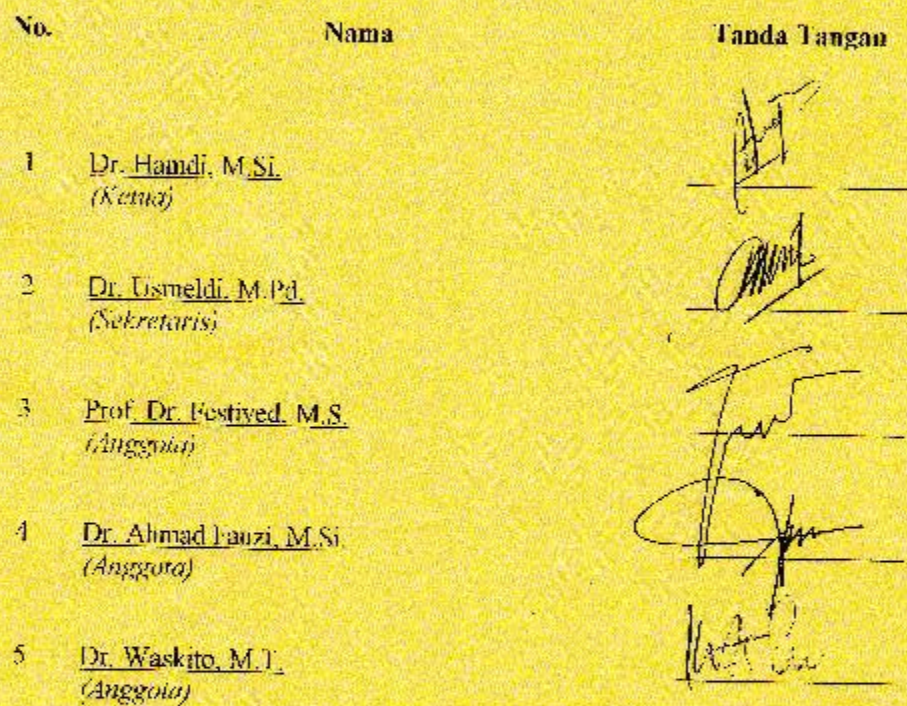 No. Nama Tanda Tangan
1 Dr. Hamdi, M.Si.
(Ketua)
2 Dr. Usmeldi, M.Pd.
(Sekretaris)
3 Prof. Dr. Festived, M.S.
(Anggota)
4 Dr. Ahmad Fauzi, M.Si.
(Anggota)
5 Dr. Waskito, M.T.
(Anggota)